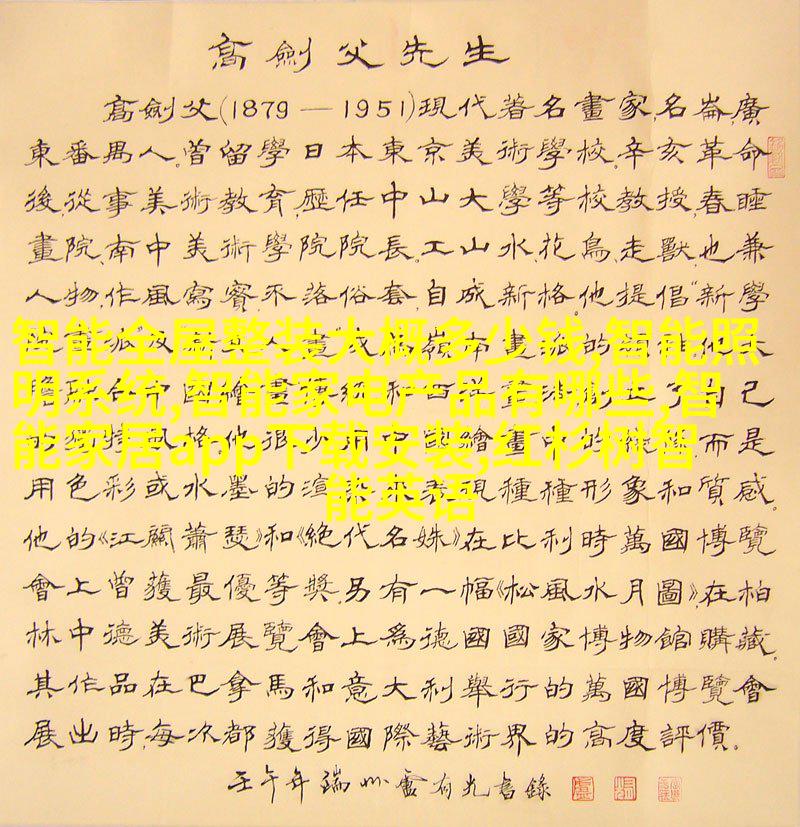 高劍父先生
高劍父(1879—1951)現代著名畫家,名崙,廣
東番禺人。曾留學日本東京美術學校。辛亥革命
後,從事美術教育,歷任中山大學等校教授,春睡
畫院、南中美術學院院長。工山水、花鳥、走獸,也兼
人物,作風寫實,不落俗套,自成新格。他提倡“新學
智能全屋整装大概多少钱,智能照
明系统,智能家电产品有哪些,智
能家居app下载安装,红杉树智
能英语
用色彩或水墨的渲染來表現種種形象和質感。
他的《江關蕭瑟》和《絕代名姝》在比利時萬國博覽
會上曾獲最優等獎。另有一幅《松風水月圖》,在柏
林中德美術展覽會上爲德國國家博物館購藏。
其作品在巴拿馬和意大利舉行的萬國博覽會
展出時,每次都獲得國際藝術界的高度評價。
壬午年端州盧有光書錄